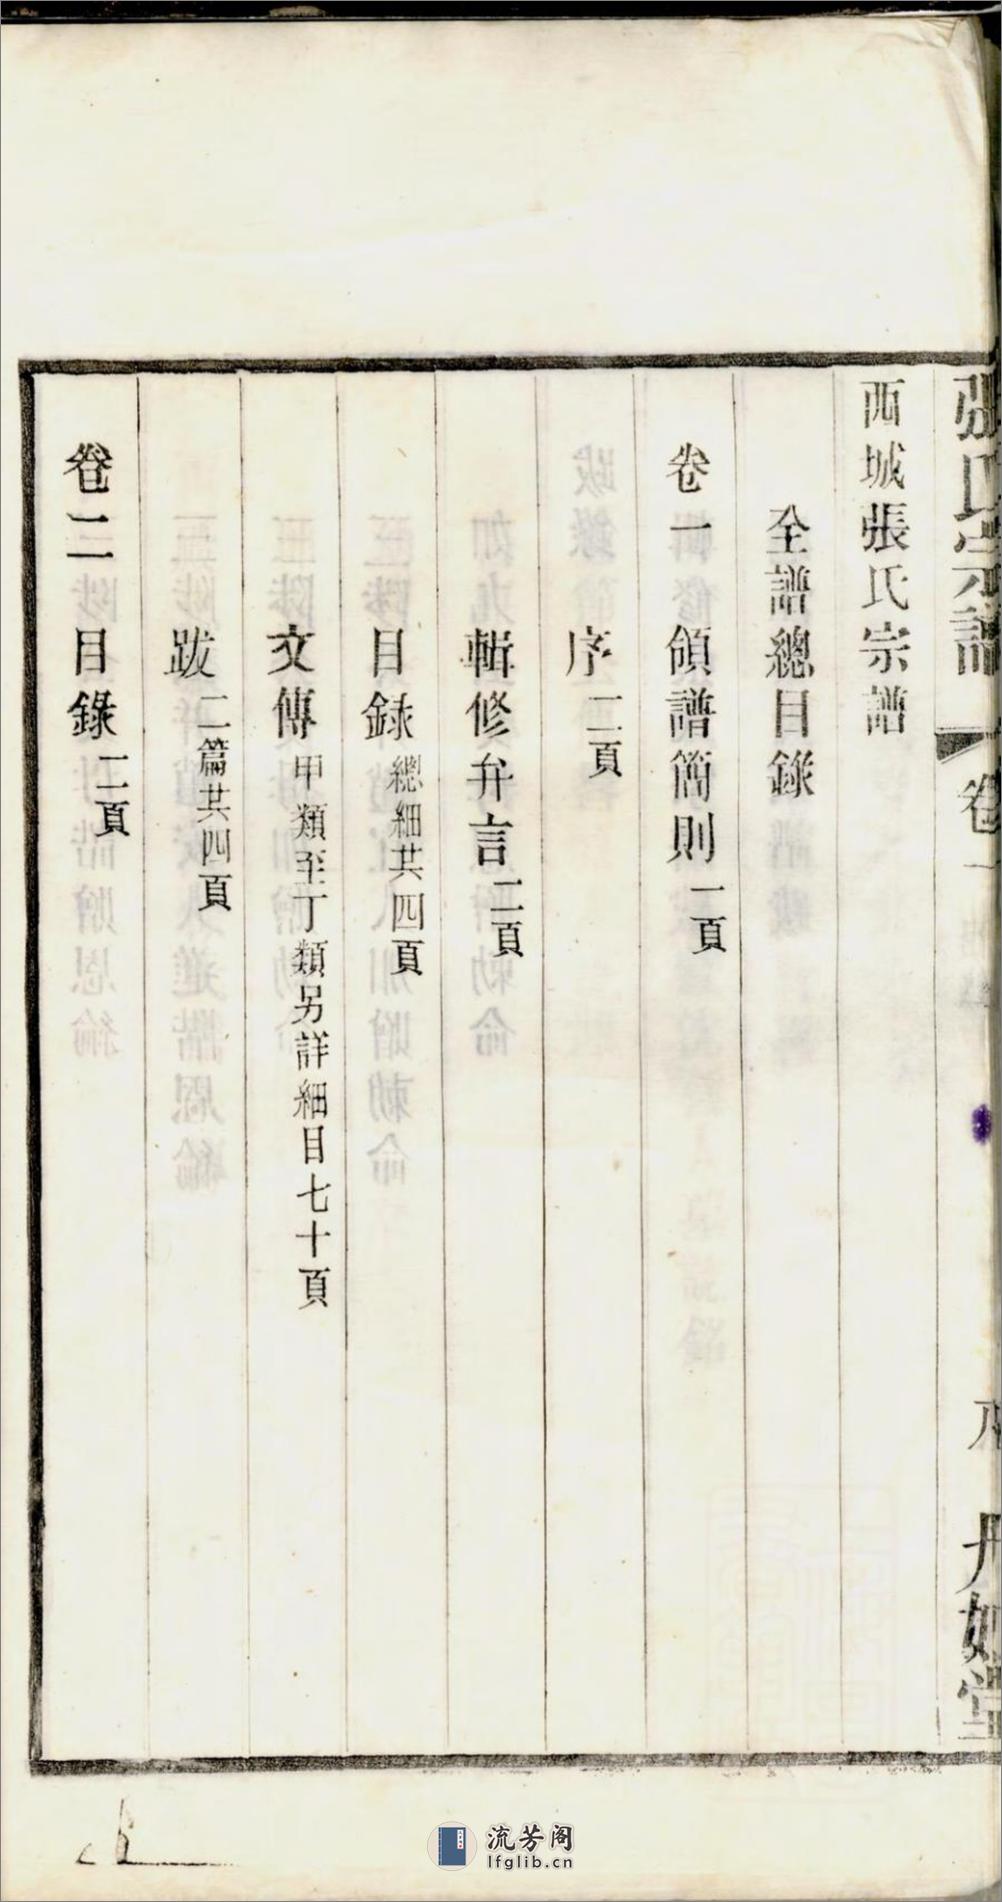 西城張氏宗譜
全譜總目錄
卷一 領譜簡則一頁
序二頁
輯修弁言二頁
目録總細共四頁
文傳甲類至丁類另詳細目七十頁
跋二篇共四頁
卷二 目錄二頁
張氏宗譜 卷一 丹如堂
流芳阁
lfglib.cn